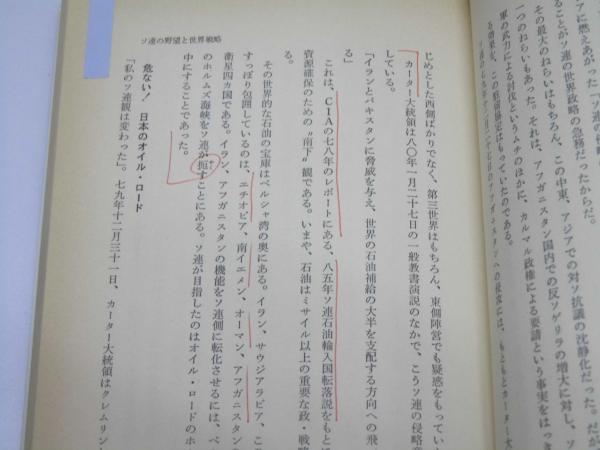 ソ連の野望と世界戦略
アに燃えあがった
ることがソ連の世界政略の急務だったからだ。
その最大のねらいはもちろん、この中東、アジアでの対ソ抗議の沈静化だった。だが
一つのねらいもあった。それは、アフガニスタン国内での反ソゲリラの増大に対し、ソ
軍の武力による討伐というムチのほかに、カルマル政権による要請という事実をはっき
る効果を、この駐留協定はもっていたのである。
じめとした西側ばかりでなく、第三世界はもちろん、東側陣営でも疑惑をもってい
カーター大統領は八〇年一月二十七日の一般教書演説のなかで、こうソ連の侵略意
している。
「イランとパキスタンに脅威を与え、世界の石油補給の大半を支配する方向への飛
る」
これは、CIAの七八年のレポートにある、八五年ソ連石油輸入国転落説をもと
資源確保のための〝南下〟観である。いまや、石油はミサイル以上の重要な政・戦略
る。
その世界的な石油の宝庫はペルシャ湾の奥にある。イラン、サウジアラビア、こ
すっぽり包囲しているのは、エチオピア、南イエメン、オーマン、アフガニスタン
衛星四カ国である。イラン、アフガニスタンの機能をソ連側に転化させるには、ペ
のホルムズ海峡をソ連が扼すことにある。ソ連が目指したのはオイル・ロードのホ
中にすることであった。
危ない！　日本のオイル・ロード
「私のソ連観は変わった」。七九年十二月三十一日、カーター大統領はクレムリン